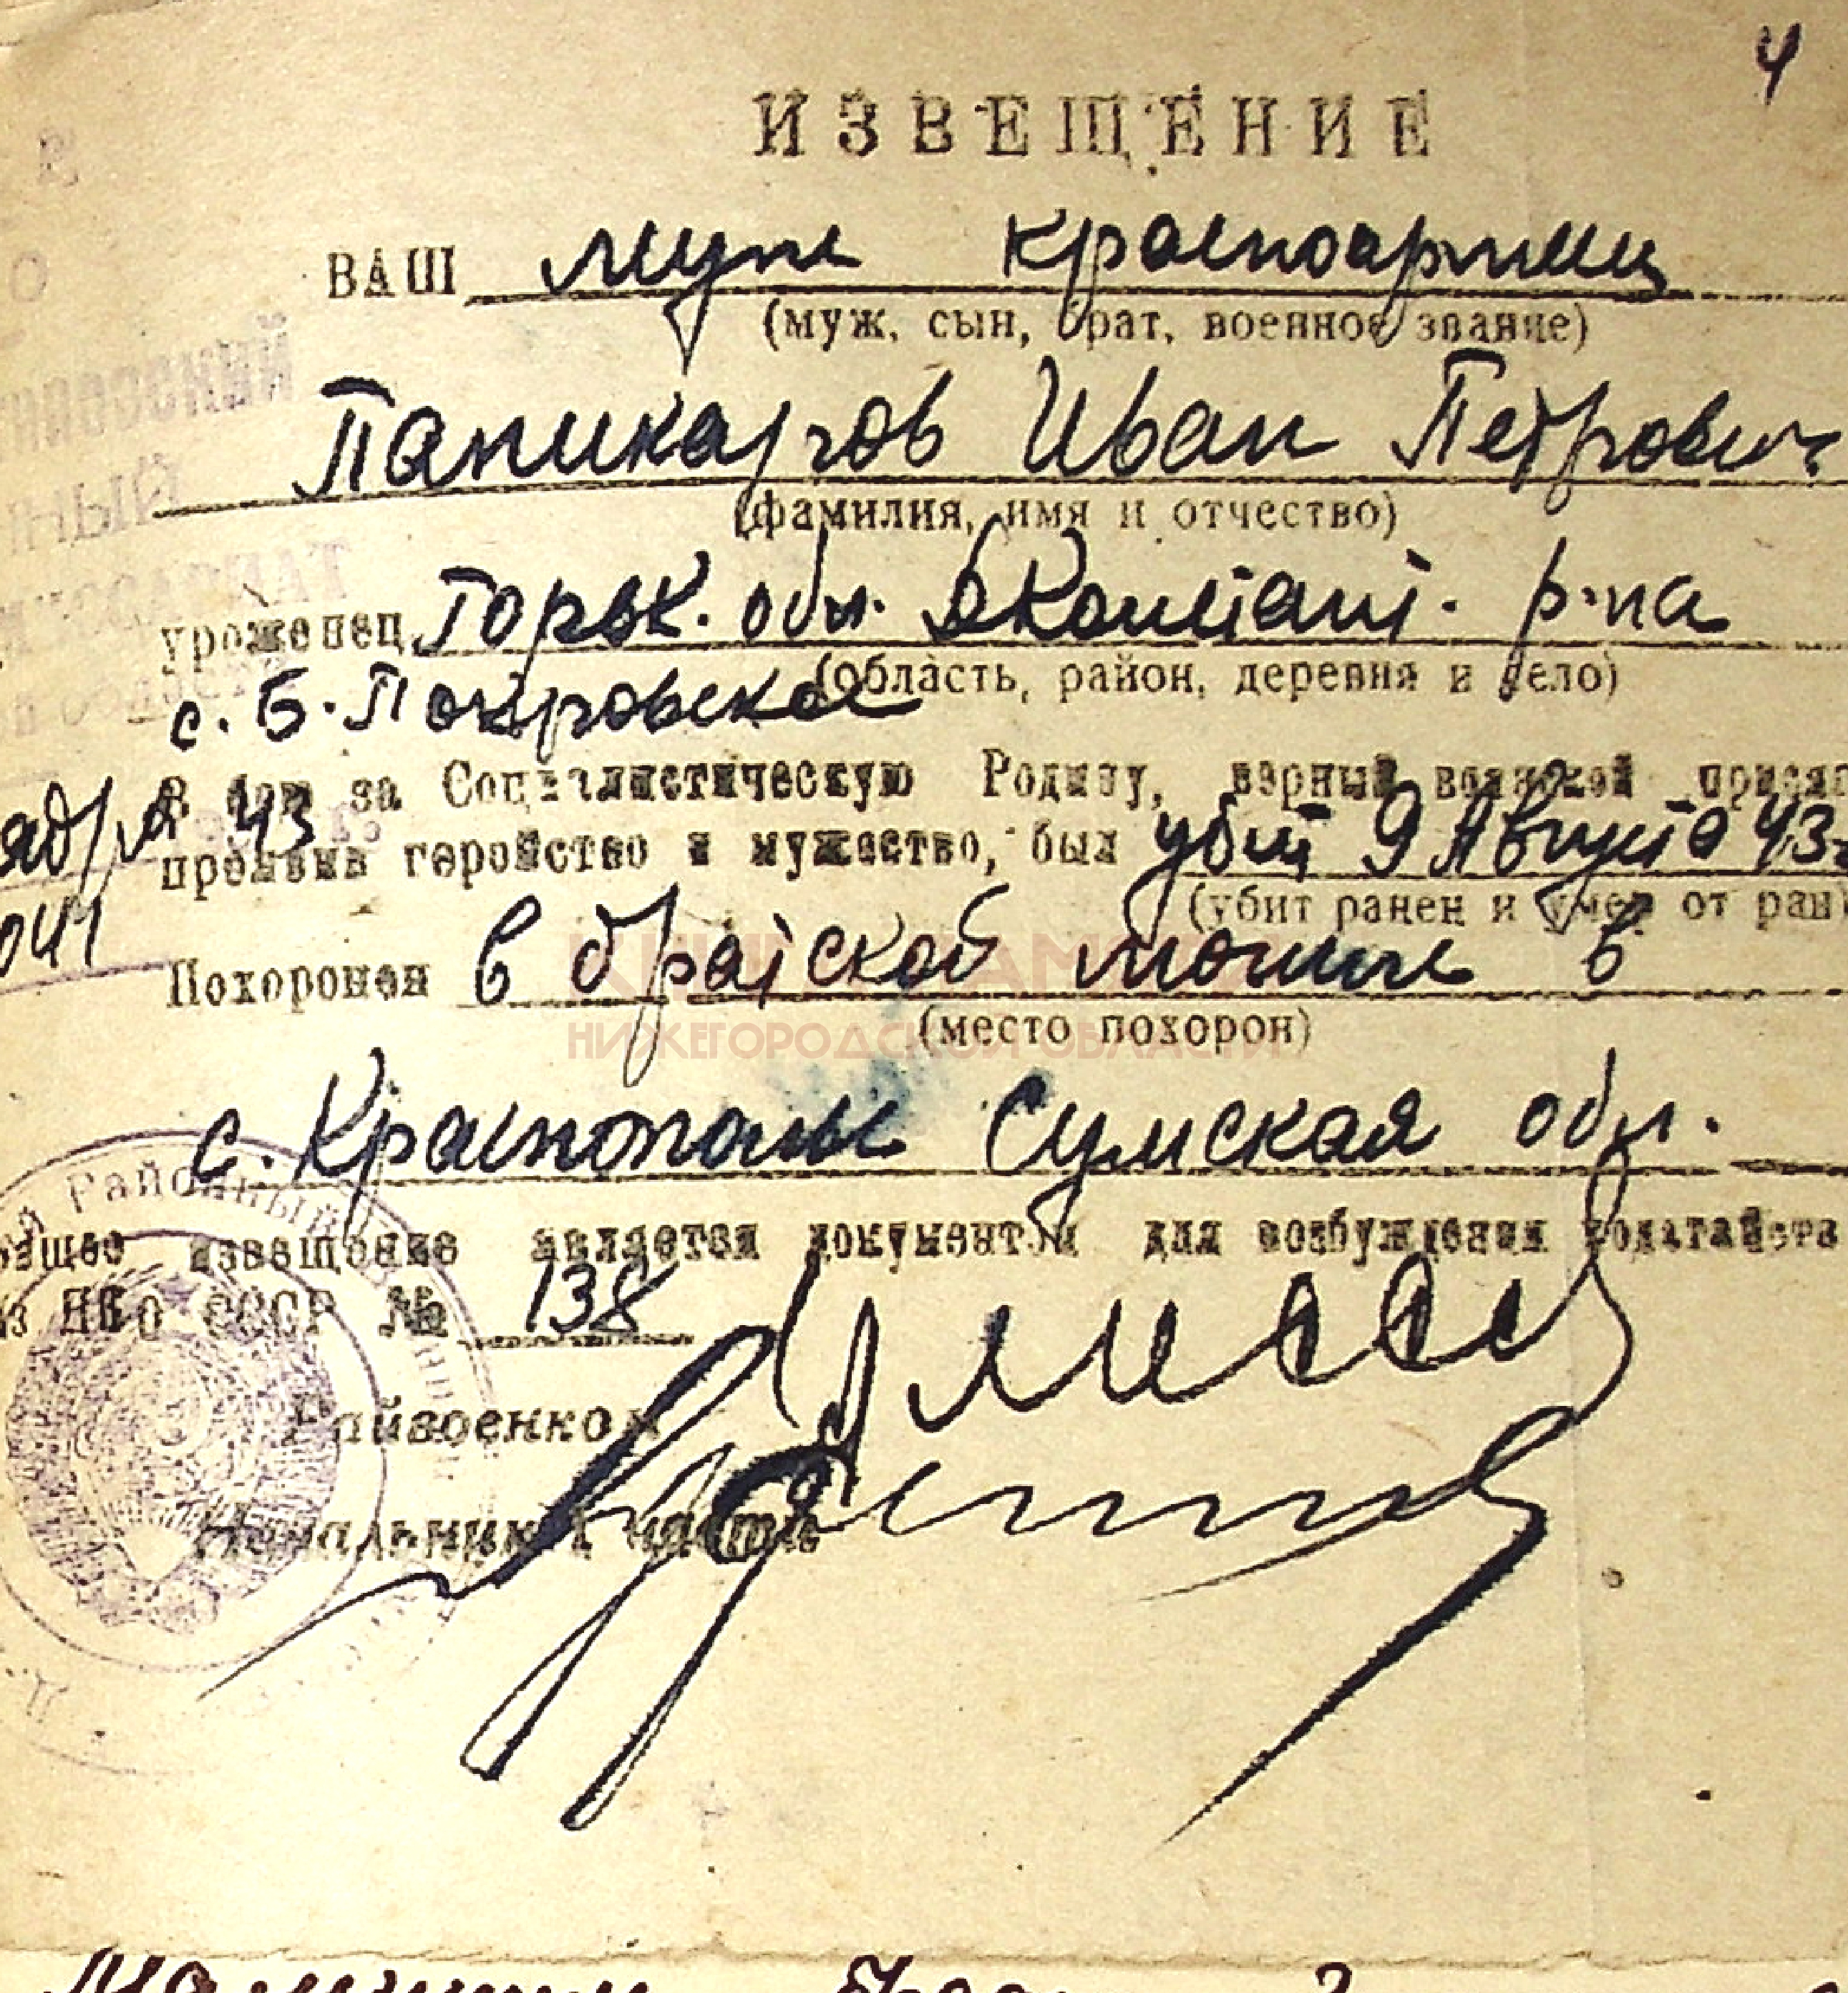 4
ИЗВЕЩЕНИЕ
ВАШ муж красноармеец
(муж, сын, брат, военное звание)
Паникаров Иван Петрович
(фамилия, имя и отчество)
уроженец Горьк. обл. р-на
(область, район, деревня и село)
с. Б. Покровское
В бою за Социалистическую Родину, верный воинской присяг
43
проявив геройство и мужество, был убит 9 Августа 43г
(убит ранен и умер от ран
041
Похоронен в братской могиле в
(место похорон)
КНИГА ПАМЯТИ
НИЖЕГОРОДСКОЙ ОБЛАСТИ
с. Краснополье Сумская обл.
Районный
ящее извещение является документом для возбуждения ходатайств
аз НКО СССР № 138
Райвоенком
Начальник 1 части